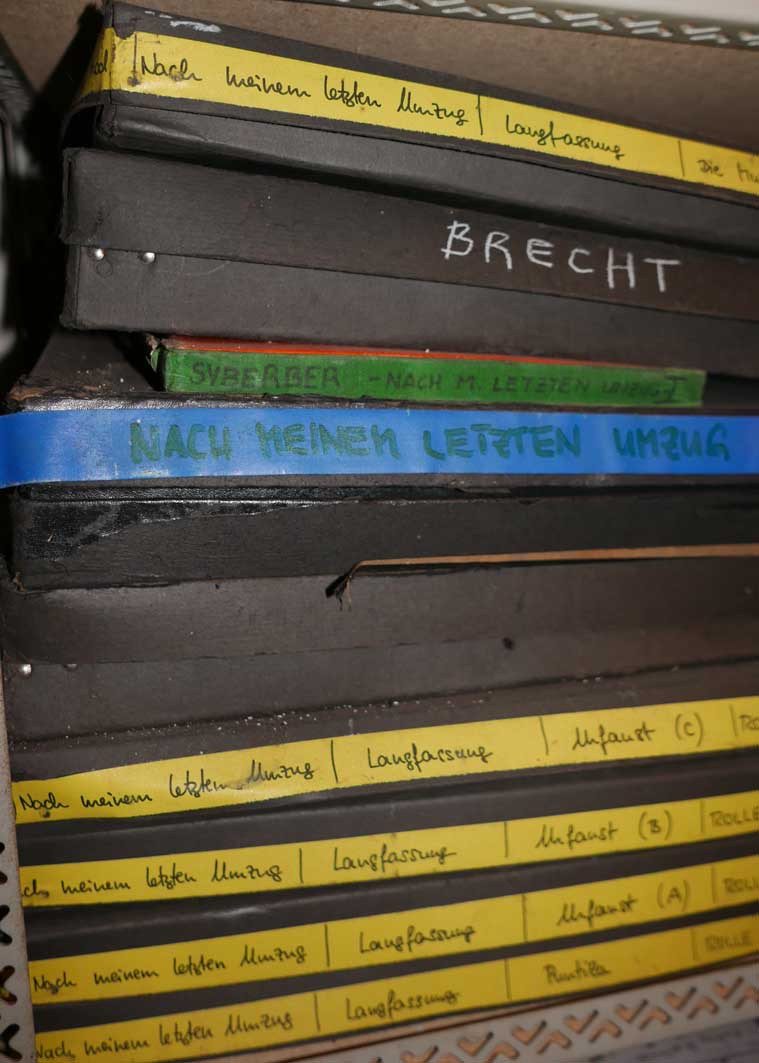 Nach meinem letzten Umzug | Langfassung | Die
BRECHT
SYBERBER - NACH M. LETZTEN UMZUG I
NACH MEINEM LETZTEN UMZUG
Nach meinem letzten Umzug | Langfassung | Urfaust (C) |
meinem letzten Umzug | Langfassung | Urfaust (B) | ROLLE
Nach meinem letzten Umzug | Langfassung | Urfaust (A) |
Nach meinem letzten Umzug | Langfassung | Puntila | ROLLE